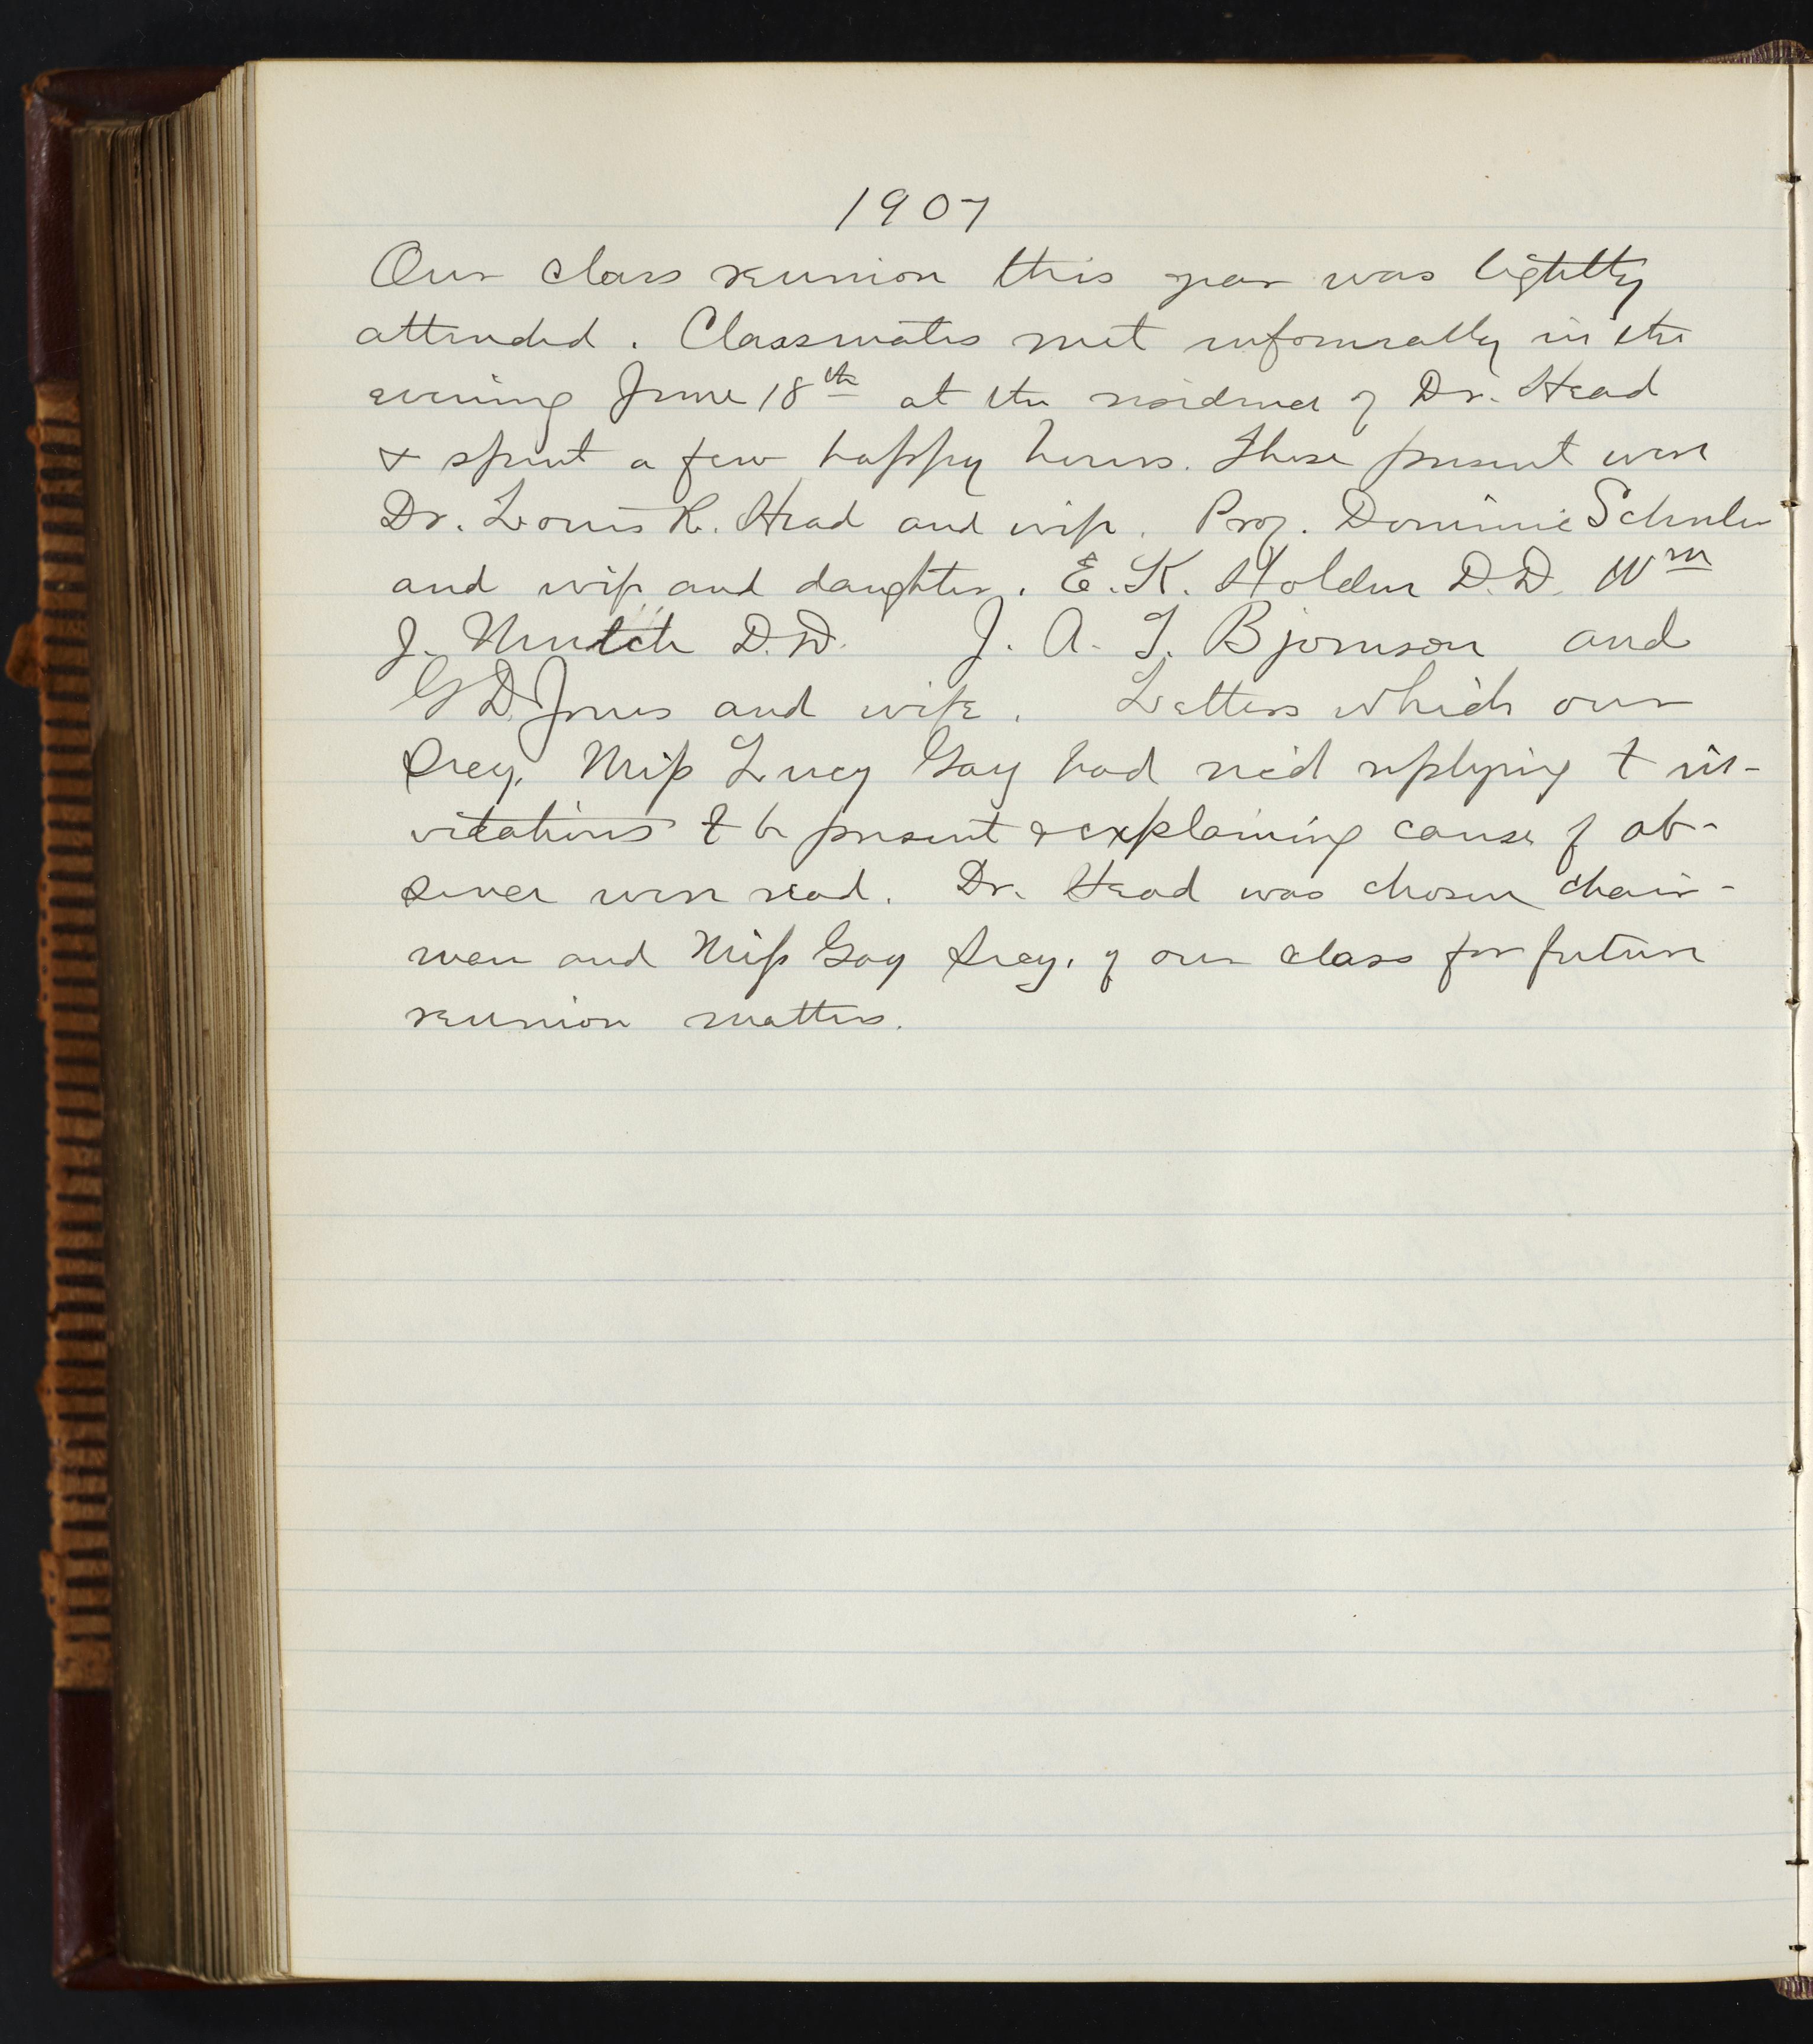 1907
Our class reunion this year was lightly
attended. Classmates met informally in the
evening June 18th at the residence of Dr. Head
& spent a few happy hours. Those present were
Dr. Louis R. Head and wife. Prof. Dominic Schuler
and wife and daughter. E. K. Holden D.D. Wm
J. Mutch D.D. J. A. I. Bjornson and
G D. Jones and wife. Letters which our
Secy. Miss Lucy Gay had rec'd replying to in-
vitations to be present & explaining cause of ab-
sence were read. Dr. Head was chosen chair-
man and Miss Gay Secy. of our class for future
reunion matters.